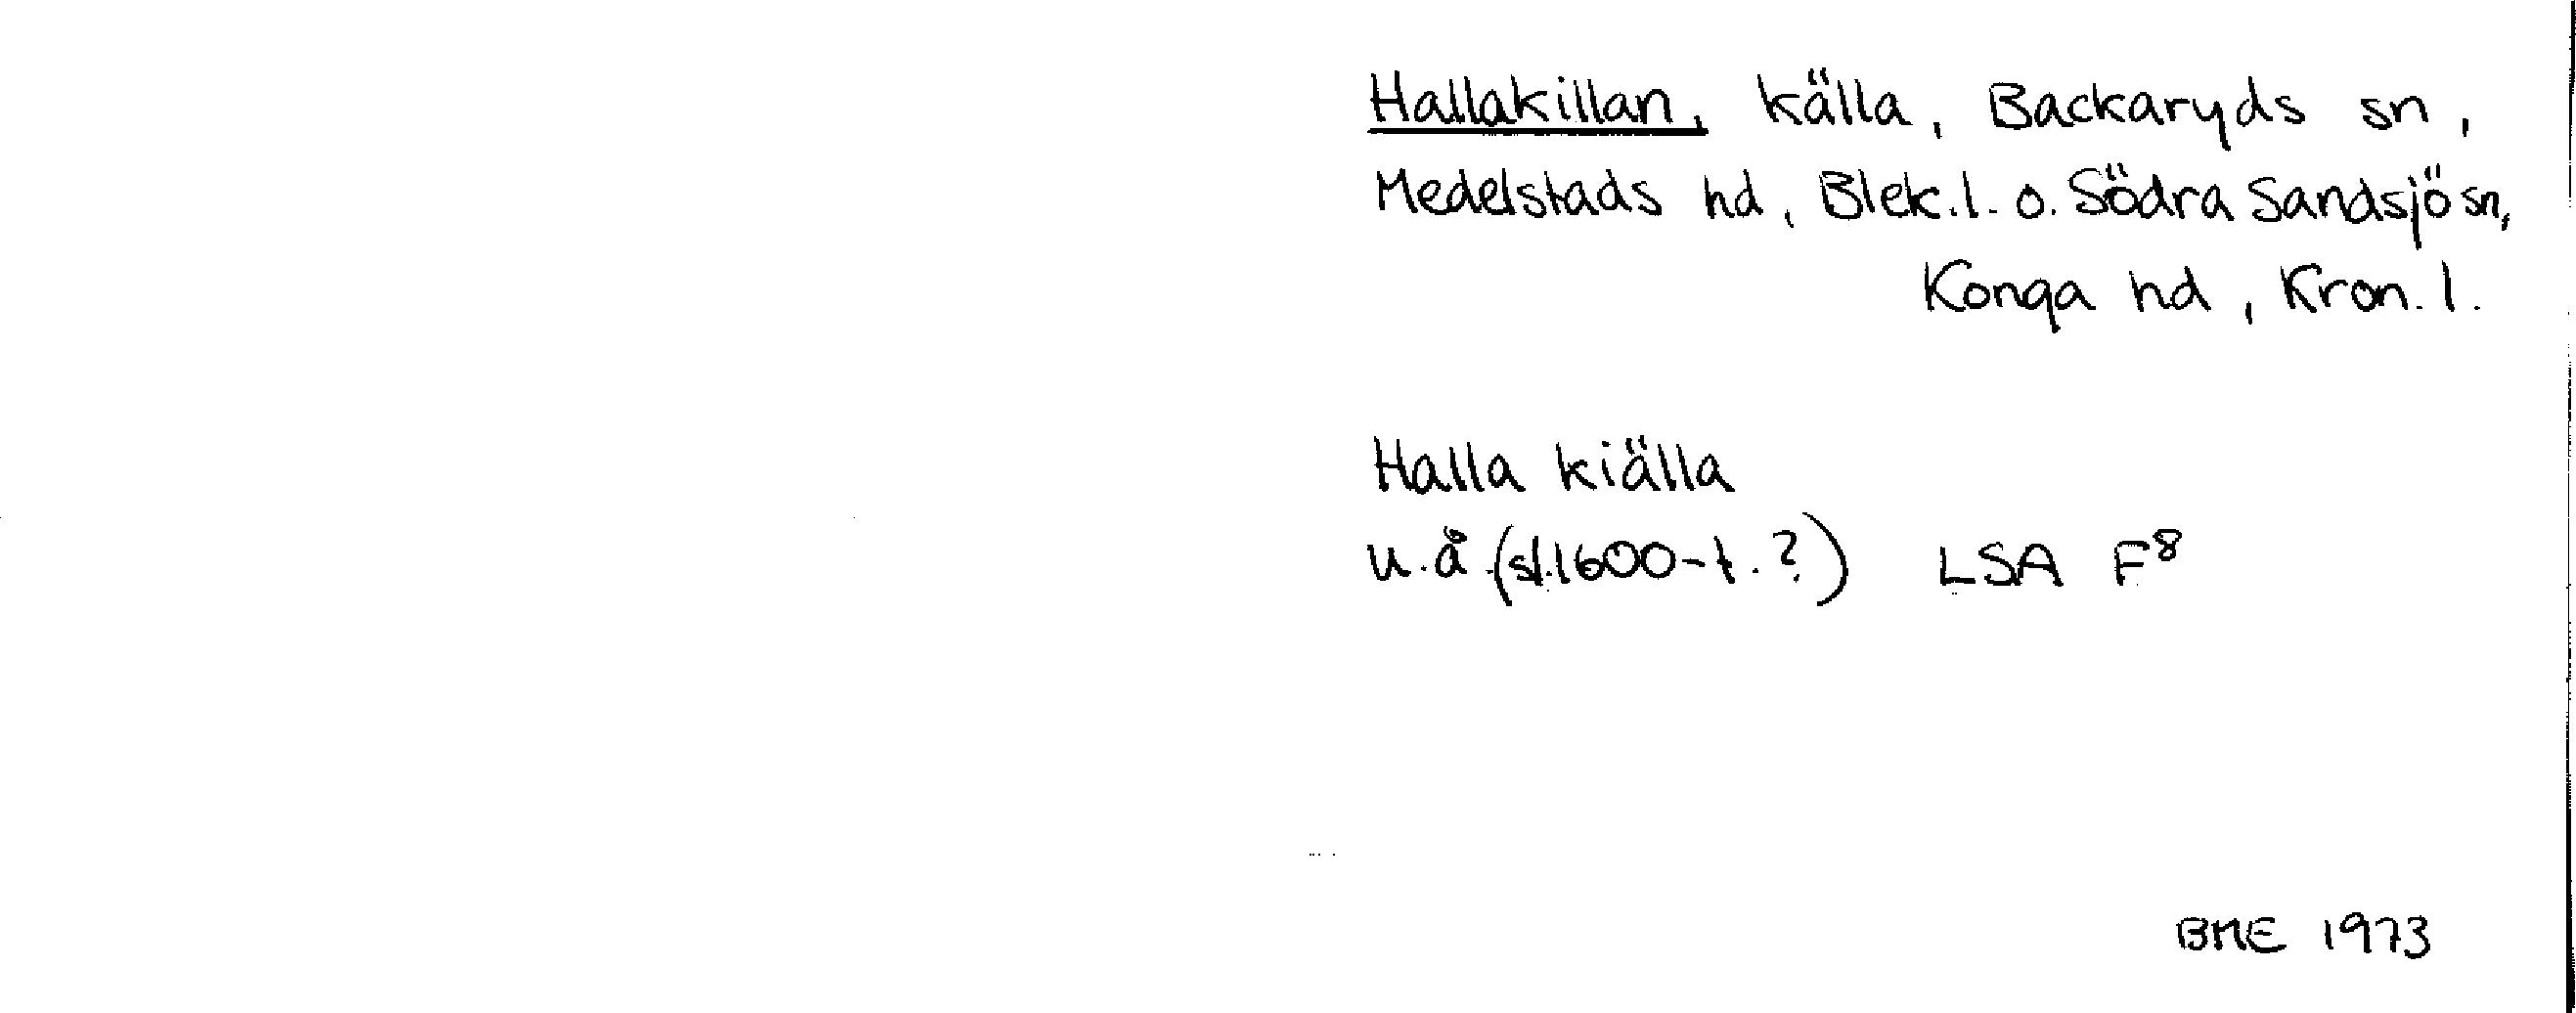 Hallakillan, källa, Backaryds sn,
Medelstads hd, Blek.l. o. Södra Sandsjö sn,
Konga hd, Kron.l.
Halla kiälla
u.å (sl.1600-t.?) LSA F⁸
BME 1973